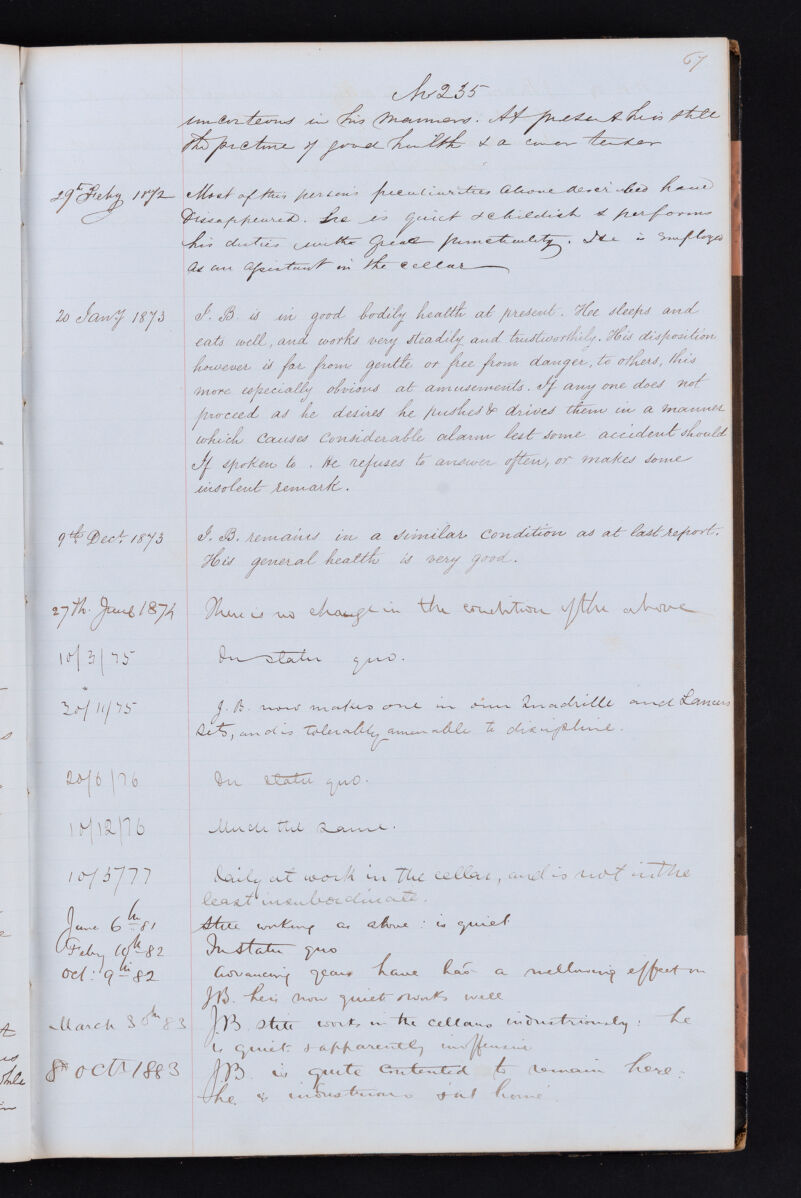 67
No 235
uncourteous in his manners. At present he is still
the picture of good health & a
29th Feby 1872 Most of this persons peculiarities above described have
Dissappeared. he is quiet & childish & performs
his duties with great punctuality. He is employed
as an assistant in the cellar
20 Jany 1873 J. B. is in good bodily health at present. Hee sleeps and
eats well, and works very steadily and trustworthily. His disposition
however is far from gentle or free from danger, to others, this
more especially obvious at amusements. If any one does not
proceed as he desires he pushes & drives them in a manner
which causes considerable alarm lest some accident should
If spoken to. He refuses to answer often, or makes some
insolent remark.
9th Dect. 1873 J. B. remains in a similar condition as at last report.
His general health is very good.
27th. June 1874 There is no change in the condition of the above
10/3/75 In statu quo.
30/11/75 J. B. now makes one in our Quadrille and Lancers
sets, and is tolerably amenable to discipline.
20/6/76 In statu quo.
10/12/76 Much the same.
10/5/77 Daily at work in the cellar, and is not in the
least insubordinate.
June 6th 81 Still working as above: is quiet
Feby 10th 82 In statu quo
Oct: 9th 82 Advancing years have had a mellowing effect on
JB. he is now quiet & works well
March 30th 83 JB. still works in the cellars industriously: he
is quiet & apparently inoffensive
8th Oct 1883 JB. is quite contented to remain here:
he is industrious & at home.